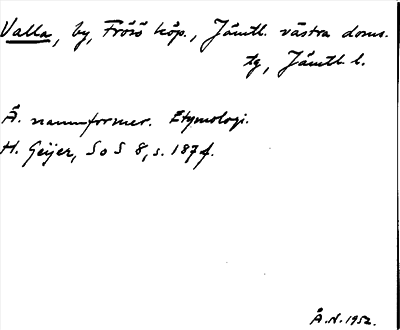 Valla, by, Frösö köp., Jämtl. västra doms.
tg, Jämtl. l.
Ä. namnformer. Etymologi.
H. Geijer, SoS 8, s. 187 f.
Å.N. 1952.